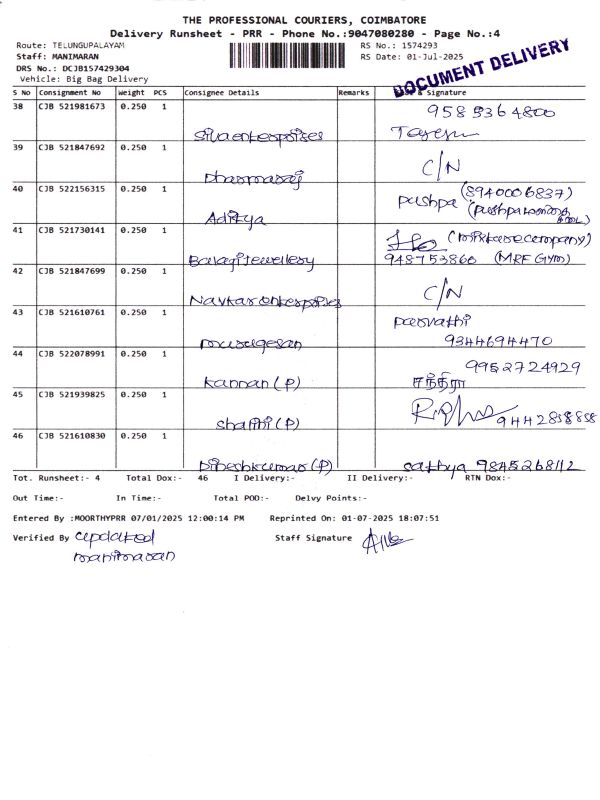 THE PROFESSIONAL COURIERS, COIMBATORE
Delivery Runsheet - PRR - Phone No.:9047080280 - Page No.:4
Route: TELUNGUPALAYAM
RS No.: 1574293
Staff: MANIMARAN
RS Date: 01-Jul-2025
DRS No.: DCJB157429304
Vehicle: Big Bag Delivery
DOCUMENT DELIVERY
S No Consignment No Weight PCS Consignee Details Remarks & Signature
38 CJB 521981673 0.250 1 9585364800
Sivaenterprises
39 CJB 521847692 0.250 1 C/N
Dharmaraj
40 CJB 522156315 0.250 1 pushpa (8940006837)
Aditya
41 CJB 521730141 0.250 1
Balajijewellery 948753860 (MRF GYM)
42 CJB 521847699 0.250 1 C/N
Navkar enterprises
43 CJB 521610761 0.250 1 parvathi
murugesan 9344694470
44 CJB 522078991 0.250 1 9952724929
kannan (P) சந்திரா
45 CJB 521939825 0.250 1
shakthi (P) 9442858858
46 CJB 521610830 0.250 1
Dineshkumar (P) sathya 9845268112
Tot. Runsheet:- 4 Total Dox:- 46 I Delivery:- II Delivery:- RTN Dox:-
Out Time:- In Time:- Total POD:- Delvy Points:-
Entered By :MOORTHYPRR 07/01/2025 12:00:14 PM Reprinted On: 01-07-2025 18:07:51
Verified By updated Staff Signature
manimaran